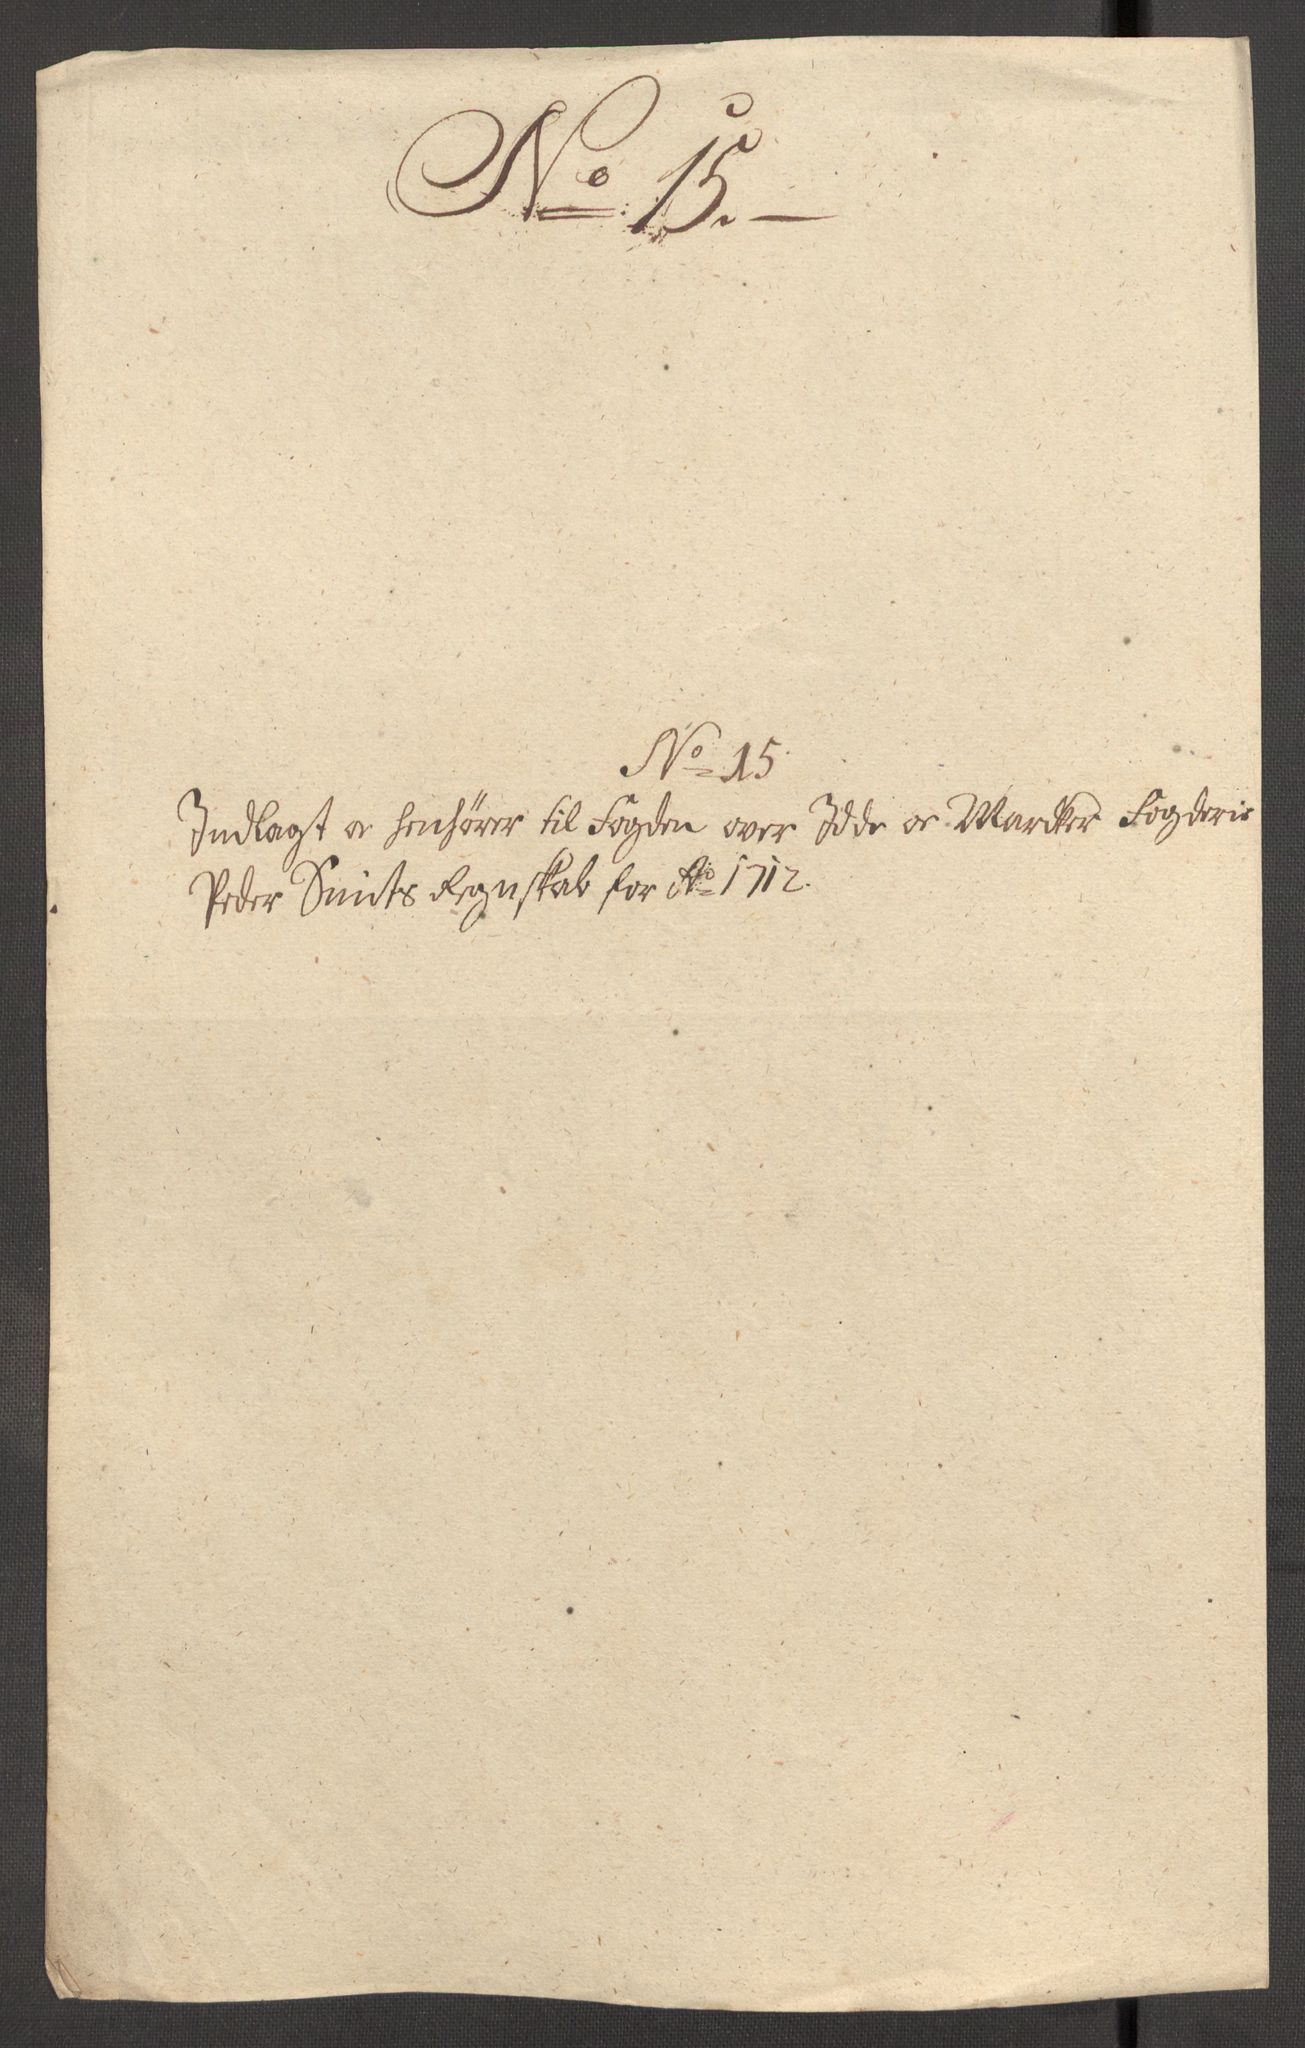 No 15.
No 15
Indlagt oc henhörer til Fogden over Idde oc Marcker Fogderie
Peder Smits Regnskab for Ao 1712.